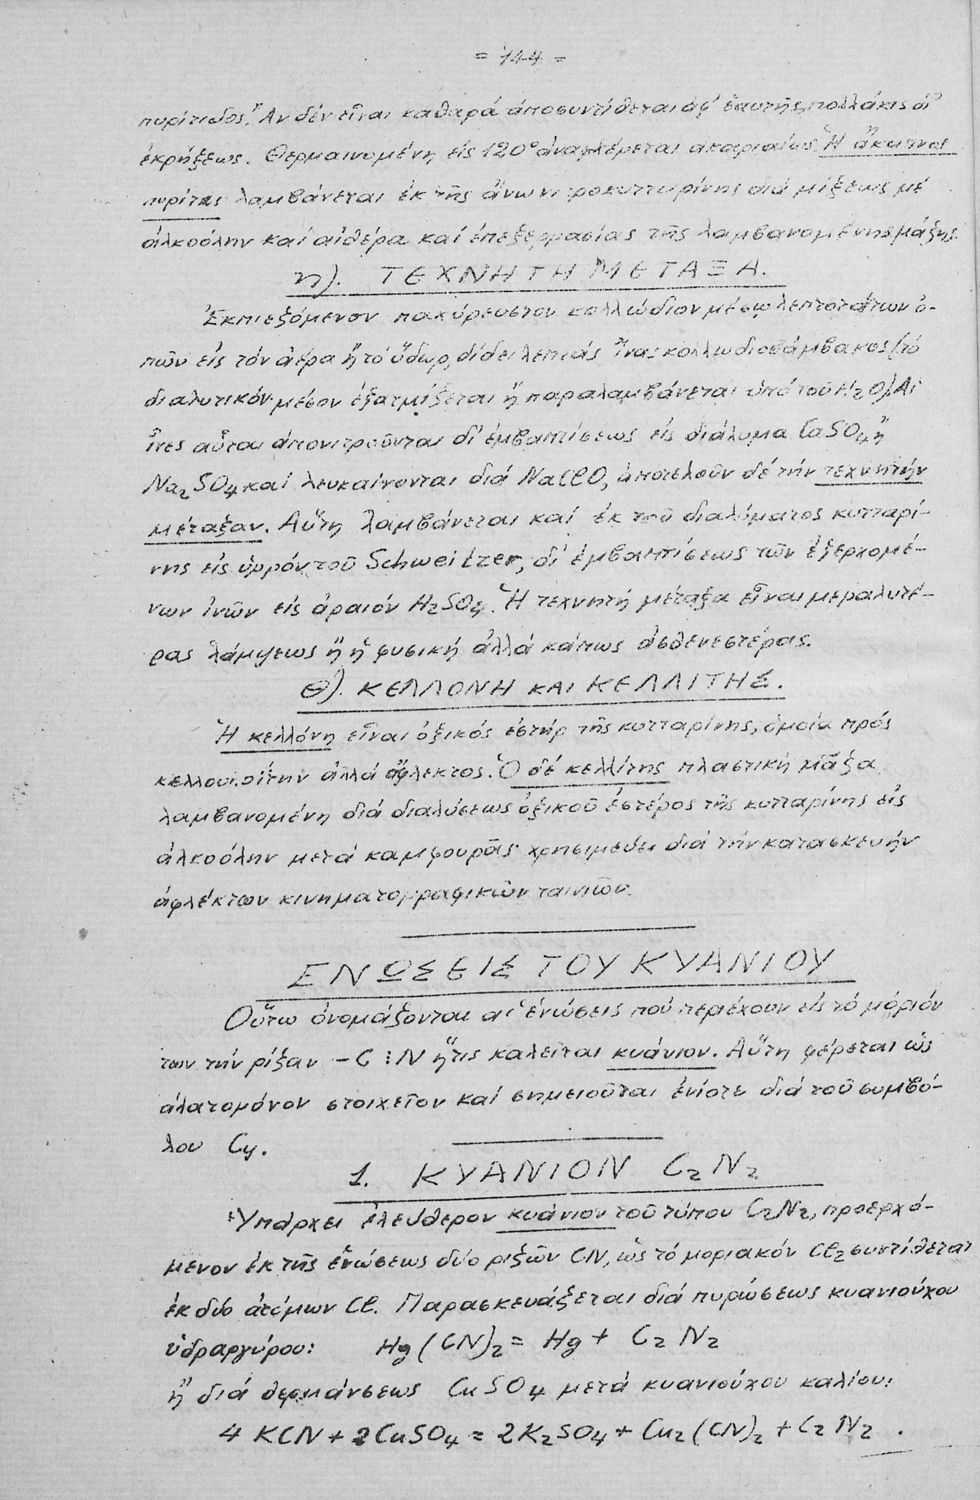 = 144 =
πυρίτιδος. Ἂν δέν εἶναι καθαρά ἀποσυντίθεται ἀφ' ἑαυτῆς, πολλάκις δι'
ἐκρήξεως. Θερμαινομένη εἰς 120° ἀναφλέγεται ἀκαριαίως. Ἡ ἄκαπνος
πυρίτις λαμβάνεται ἐκ τῆς ἄνω νιτροκυτταρίνης διά μίξεως μέ
ἀλκοόλην καί αἰθέρα καί ἐπεξεργασίας τῆς λαμβανομένης μάζης.
η). ΤΕΧΝΗΤΗ ΜΕΤΑΞΑ.
Ἐκπιεζόμενον παχύρευστον κολλώδιον μέσῳ λεπτοτάτων ὀ-
πῶν εἰς τόν ἀέρα ἤ τό ὕδωρ, δίδει λεπτάς ἵνας κολλωδιοβάμβακος (τό
διαλυτικόν μέσον ἐξατμίζεται ἤ παραλαμβάνεται ὑπό τοῦ H₂O). Αἱ
ἶνες αὗται ἀπονιτροῦνται δι' ἐμβαπτίσεως εἰς διάλυμα CaSO₄ ἤ
Na₂SO₄ καί λευκαίνονται διά NaClO, ἀποτελοῦν δέ τήν τεχνητήν
μέταξαν. Αὕτη λαμβάνεται καί ἐκ τοῦ διαλύματος κυτταρί-
νης εἰς ὑγρόν τοῦ Schweitzer, δι' ἐμβαπτίσεως τῶν ἐξερχομέ-
νων ἰνῶν εἰς ἀραιόν H₂SO₄. Ἡ τεχνητή μέταξα εἶναι μεγαλυτέ-
ρας λάμψεως ἤ ἡ φυσική ἀλλά κάπως ἀσθενεστέρας.
θ). ΚΕΛΛΟΝΗ ΚΑΙ ΚΕΛΛΙΤΗΣ.
Ἡ κελλόνη εἶναι ὀξικός ἐστήρ τῆς κυτταρίνης, ὁμοία πρός
κελλουλοΐτην ἀλλά ἄφλεκτος. Ὁ δέ κελλίτης πλαστική μᾶζα
λαμβανομένη διά διαλύσεως ὀξικοῦ ἐστέρος τῆς κυτταρίνης εἰς
ἀλκοόλην μετά καμφουρᾶς χρησιμεύει διά τήν κατασκευήν
ἀφλέκτων κινηματογραφικῶν ταινιῶν.
ΕΝΩΣΕΙΣ ΤΟΥ ΚΥΑΝΙΟΥ
Οὕτω ὀνομάζονται αἱ ἑνώσεις πού περιέχουν εἰς τό μόριόν
των τήν ρίζαν -C⋮N ἥτις καλεῖται κυάνιον. Αὕτη φέρεται ὡς
ἁλατογόνον στοιχεῖον καί σημειοῦται ἐνίοτε διά τοῦ συμβό-
λου Cy.
1. ΚΥΑΝΙΟΝ C₂N₂
Ὑπάρχει ἐλεύθερον κυάνιον τοῦ τύπου C₂N₂, προερχό-
μενον ἐκ τῆς ἑνώσεως δύο ριζῶν CN, ὡς τό μοριακόν Cl₂ συντίθεται
ἐκ δύο ἀτόμων Cl. Παρασκευάζεται διά πυρώσεως κυανιούχου
ὑδραργύρου: Hg(CN)₂ = Hg + C₂N₂
ἤ διά θερμάνσεως CuSO₄ μετά κυανιούχου καλίου:
4KCN + 2CuSO₄ = 2K₂SO₄ + Cu₂(CN)₂ + C₂N₂.